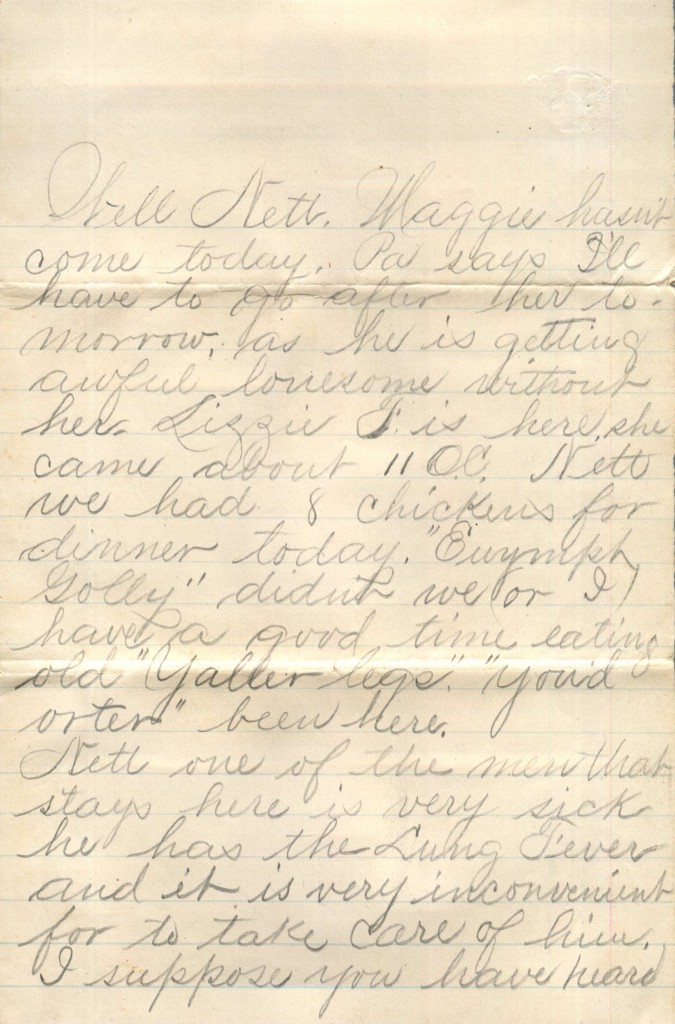 Well Nett. Maggie hasn't
come today. Pa says I'll
have to go after her to-
morrow, as he is getting
awful lonesome without
her. Lizzie F. is here, she
came about 11 O.C. Nett
we had 8 chickens for
dinner today. "
Golly" didn't we (or I)
have a good time eating
old "Yaller legs." "you'd
orter" been here.
Nett one of the men that
stays here is very sick
he has the Lung Fever
and it is very inconvenient
for to take care of him.
I suppose you have heard